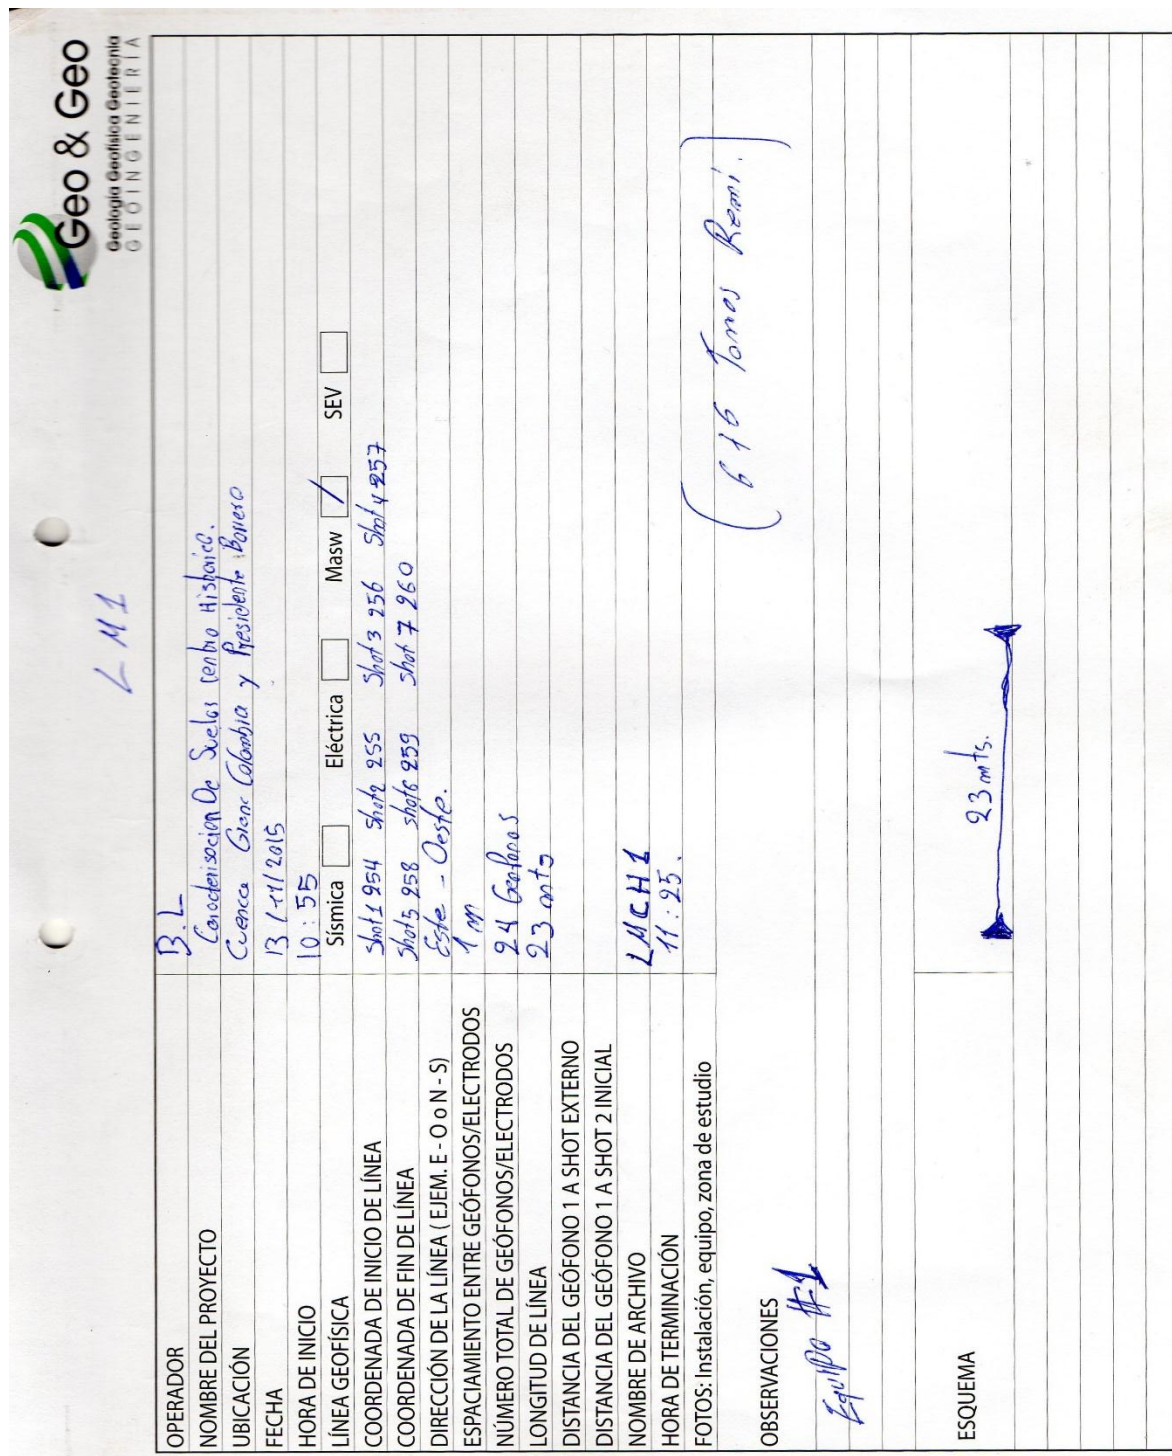 LM1
Geo & Geo
Geología Geofísica Geotecnia
GEOINGENIERÍA
OPERADOR B.L
NOMBRE DEL PROYECTO Caracterisacion De Suelos Centro Historico.
UBICACIÓN Cuenca Gran Colombia y Presidente Borrero
FECHA 13/11/2015
HORA DE INICIO 10:55
LÍNEA GEOFÍSICA Sísmica Eléctrica Masw / SEV
COORDENADA DE INICIO DE LÍNEA Shot 1 254 Shot 2 255 Shot 3 256 Shot 4 257
COORDENADA DE FIN DE LÍNEA Shot 5 258 shot 6 259 shot 7 260
DIRECCIÓN DE LA LÍNEA ( EJEM. E - O o N - S) Este - Oeste.
ESPACIAMIENTO ENTRE GEÓFONOS/ELECTRODOS 1 m
NÚMERO TOTAL DE GEÓFONOS/ELECTRODOS 24 Geofonos
LONGITUD DE LÍNEA 23 mts
DISTANCIA DEL GEÓFONO 1 A SHOT EXTERNO
DISTANCIA DEL GEÓFONO 1 A SHOT 2 INICIAL
NOMBRE DE ARCHIVO LMCH1
HORA DE TERMINACIÓN 11:25.
FOTOS: Instalación, equipo, zona de estudio
(616 Tomas Remi.)
OBSERVACIONES
Equipo #1
ESQUEMA
23 mts.